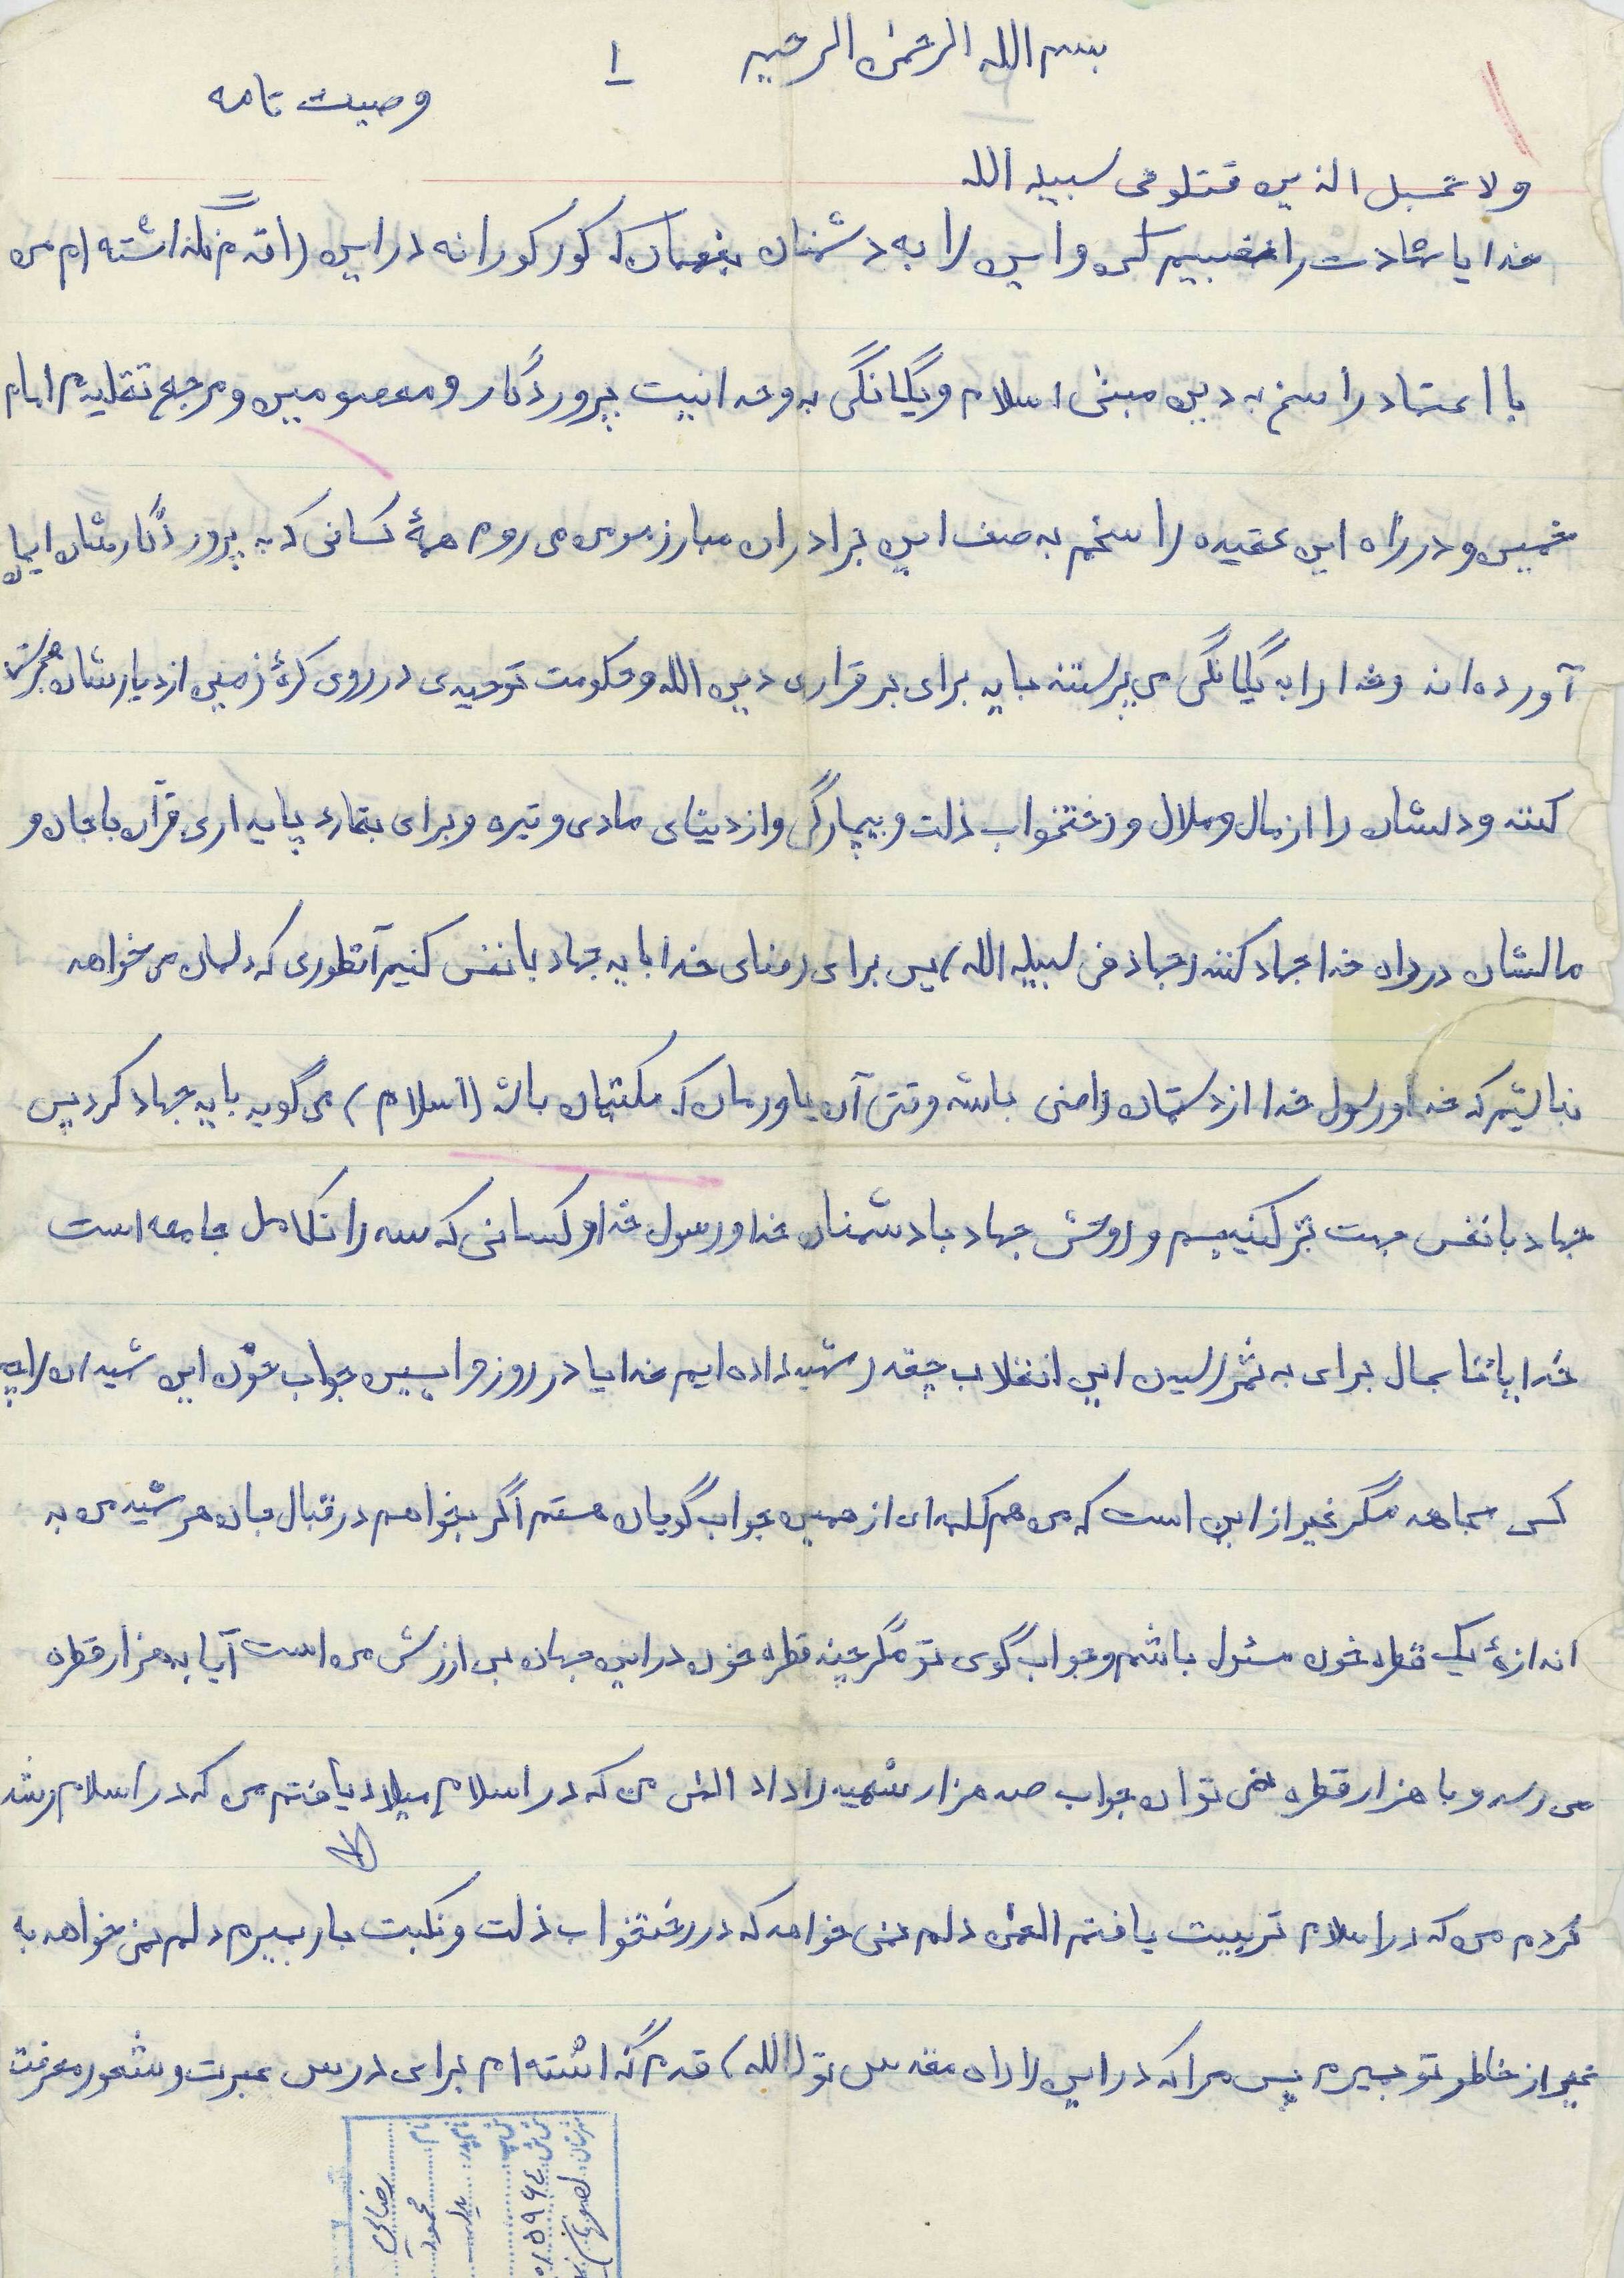 بسم الله الرحمن الرحیم
۱
وصیت نامه
ولا تحسبل الذین قتلو فی سبیله الله
خدایا شهادت را نصیبم کن و این را به دشمنان بفهمان که کورکورانه در این راه قدم نگذاشته ام من
با اعتقاد راسخ به دین مبنی اسلام و یگانگی به وحدانیت پروردگار و معصومین و مرجع تقلیدم امام
خمینی و در راه این عقیده راسخم به صف این برادران مبارز مومن می روم همهٔ کسانی که به پروردگارشان ایمان
آورده اند و خدا را به یگانگی می پرستند باید برای برقراری دین الله و حکومت توحیدی در روی کرهٔ زمین از دیارشان هجرت
کنند و دلشان را از مال و ملال و رختخواب ذلت و بیچارگی و از دنیای مادی و تیره و برای بقاء و پایداری قرآن با جان و
مالشان در راه خدا جهاد کنند (جهاد فی لسبیله الله) پس برای رضای خدا باید جهاد با نفس کنیم آنطوری که دلمان می خواهد
نباشیم که خدا و رسول خدا از دستمان راضی باشد وقتی آن یاورمان که مکتبمان باشد (اسلام) می گوید باید جهاد کرد پس
جهاد با نفس جهت تزکنیم و روحش جهاد با دشمنان خدا و رسول خدا و کسانی که سد راه تکامل جامعه است
خدا برای به ثمر رسیدن این انقلاب چقدر شهید داده ایم خدایا در روز واپسین جواب خون این شهیدان را چه
کسی میجاهد مگر غیر از این است که من هم کلمه ای از همین جواب گویان هستم اگر بخواهم در قبال جان هر شهیدی به
اندازهٔ یک قطره خون مسئول باشم و جواب گوی تو مگر چند قطره خون در این جهان بی ارزش من است آیا به هزار قطره
می رسد و با هزار قطره نمی توان جواب صد هزار شهید را داد الهی من که در اسلام میلاد یافتم من که در اسلام رشد
کردم من که در اسلام تربیت یافتم الهی دلم نمی خواهد که در رختخواب ذلت و نکبت بار بمیرم دلم نمی خواهد به
غیر از خاطر تو بمیرم پس مرا که در این راه راه مقدس تو (الله) قدم گذاشته ام برای درس عبرت و شعور معرفت
نام رضائی
نام محمود